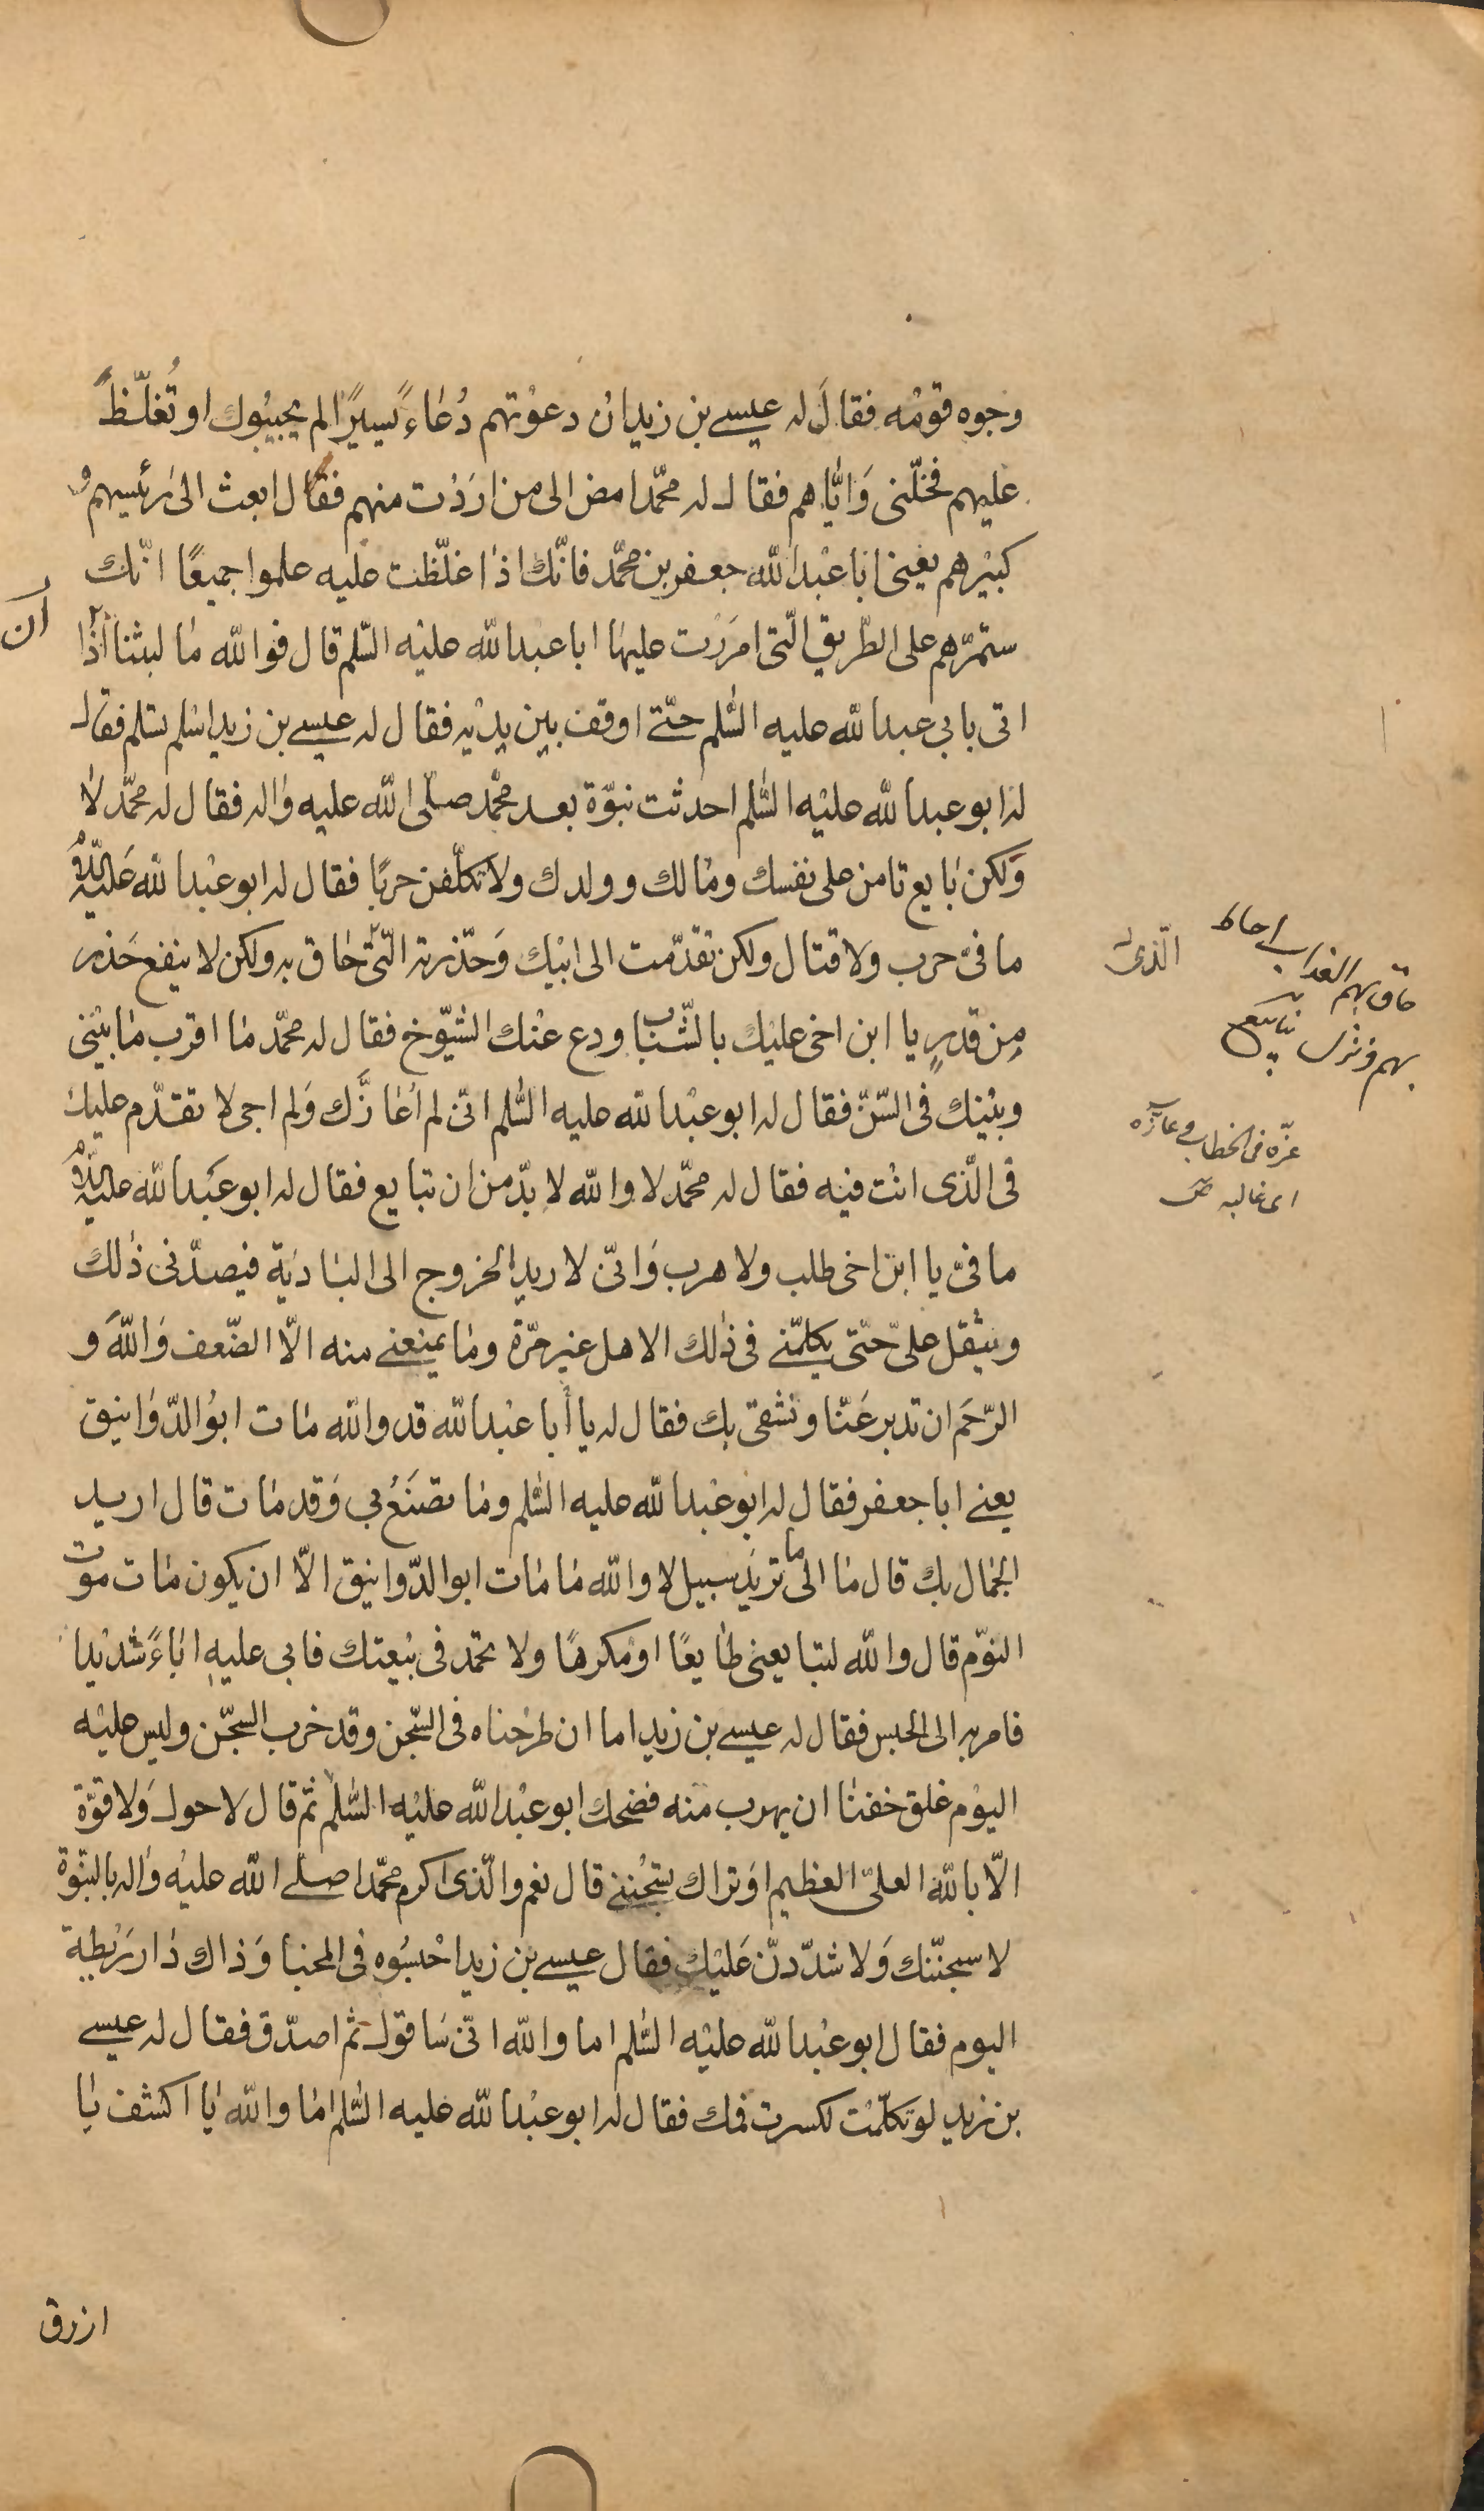 وجوه قومه فقال له عيسى بن زيد ان دعوتهم دُعاءً يسيرًا لم يجيبوك او تُغلّظ
عليهم فخلّنى وَايّاهم فقال له محمّد امض الى من ارَدْت منهم فقال ابعث الىٰ رئيسهم و
كبيْرهم يعنى ابا عبْد الله جعفر بن محمّد فانّك اذا غلّظت عليه علموا جميعًا انّك
ستمرّهم على الطّريق الّتى امرَرْت عليها ابا عبد الله عليْه السّلم قال فوالله ما لبثنا اذا
ان
اتى بابى عبد الله عليه السّلم حتّى اوقف بين يديْه فقال له عيسى بن زيد اسلم تسلم فقال
له ابو عبد الله عليْه السّلم احدثت نبوّة بعد محمّد صلّى الله عليه واله فقال له محمّد لا
وَلكن بايع تامن على نفسك ومالك وولدك ولا تكلّفن حربًا فقال له ابو عبْد الله عَليْه السّلم
ما فىّ حرب ولا قتال ولكن تقدّمت الى ابيْك وَحذّرته الّتى حاق به ولكن لا ينفع حَذر
الّذى
حاق بهم العذاب احاط
بهم ونزل
مِن قدرٍ يا ابن اخى عليْك بالشّباب ودع عنْك الشيّوخ فقال له محمّد ما اقرب ما بيْنى
وبيْنك فى السّنّ فقال له ابو عبْد الله عليه السّلم انّى لم اُعازَّك وَلم اجى لا تقدّم عليك
عزّه فى الخطاب وعازّه
اى غالبه ص
فى الّذى انْت فيْه فقال له محمّد لا والله لا بدّ من ان تبايع فقال له ابو عبْد الله عليه السّلم
ما فىّ يا ابن اخى طلب ولا هرب وَانّى لاريد الخروج الى البادية فيصدّنى ذلك
ويثقل علىّ حتّى يكلمّنى فى ذلك الاهل غير مرّة وما يمنعنى منه الّا الضّعف وَاللهَ و
الرّحَم ان تدبر عَنّا ونشقى بك فقال له يا أبا عبْد الله قد والله مات ابوُ الدّوانيق
يعنى ابا جعفر فقال له ابو عبْد الله عليه السّلم وما تصْنَعُ بى وَقد مات قال اريد
الجمال بك قال ما الى ما تريد سبيل لا والله ما مات ابو الدّوانيق الّا ان يكون مات موت
النوّم قال والله لتبايعنى طايعًا او مكرهًا ولا تحمد فى بيْعتك فابى عليه اباءً شديْدا
فامر به الى الحبس فقال له عيسى بن زيد اما ان طرحْناه فى السّجن وقد خرب السجّن وليس عليْه
اليوْم غلق خفنا ان يهرب منه فضحك ابو عبْد الله عليْه السّلم ثمّ قال لا حول وَلا قوّة
الّا بالله العلىّ العظيم اوَتراك تسْجُننى قال نعم والّذى اكرم محمّدا صلّى الله عليْه واله بالنبّوة
لاسجنّنك وَلاشدّدنّ عَليْك فقال عيسى بن زيد احْبسُوه فى المخبا وَذاك دار رَيْطة
اليوم فقال ابو عبْد الله عليْه السّلم اما والله انّى سَاقول ثمّ اصدّق فقال له عيسى
بن زيد لو تكلّمْت لكسرت فمك فقال له ابو عبْد الله عليه السّلم اما والله يا اكشف يا
ازرق